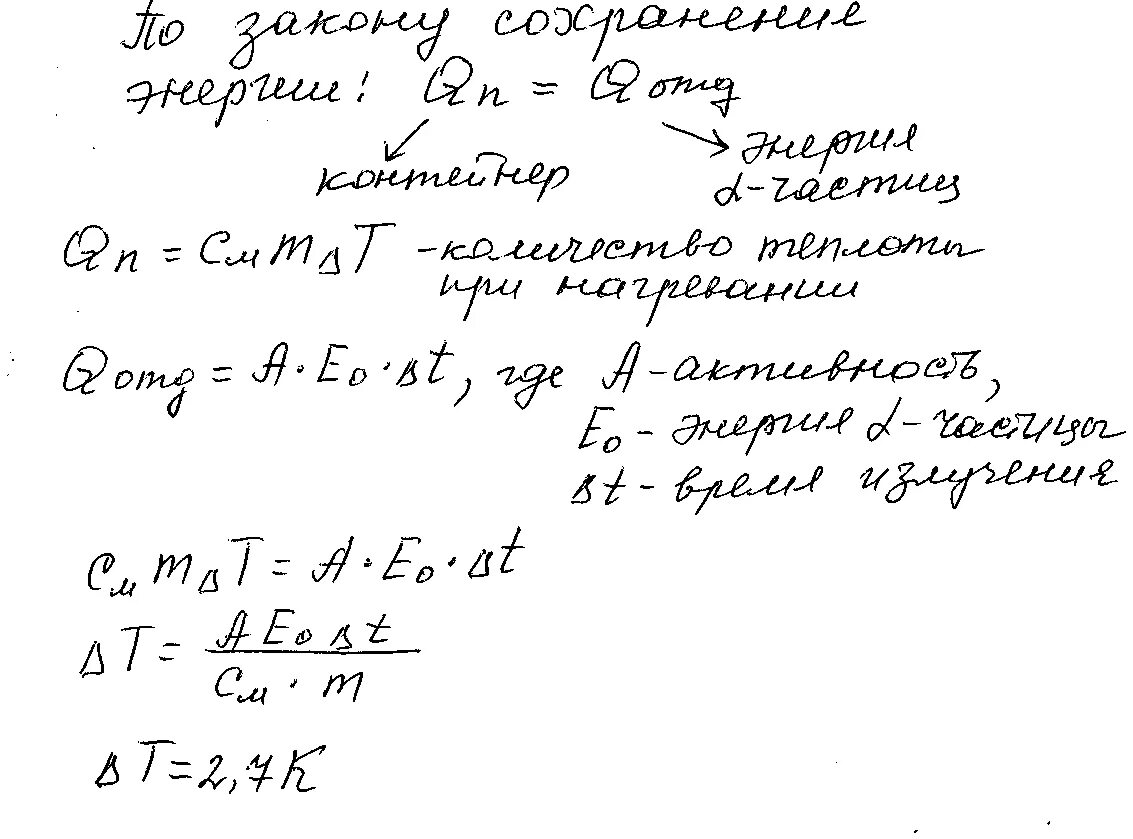 По закону сохранения
энергии: Qп = Qотд
контейнер
энергия
α-частиц
Qп = См m Δ T - количество теплоты
при нагревании
Qотд = A · E₀ · Δt, где A - активность,
E₀ - энергия α-частицы
Δt - время излучения
См m Δ T = A · E₀ · Δt
ΔT = A E₀ Δt
См · m
ΔT = 2,7 К